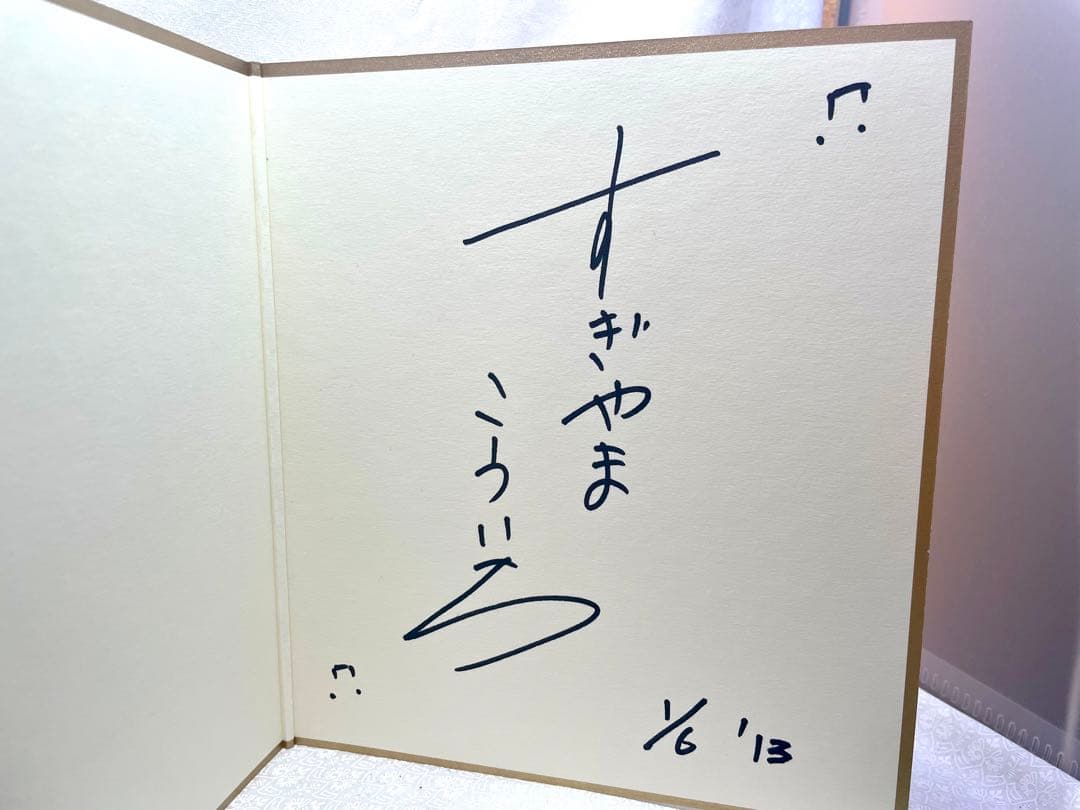 すぎやま
こういち
1/6 '13